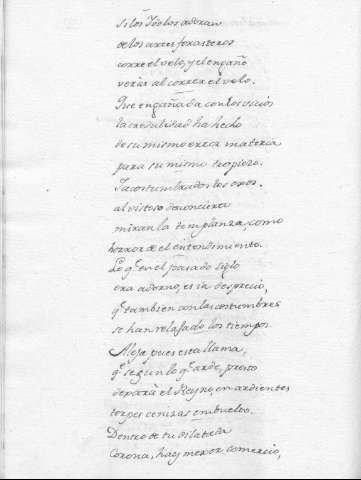 Si los Idolos adoran
de los artes forasteros
corre el velo, y el engaño
verás al correr el velo.
Que engañada con los vicios
la credulidad ha hecho
de su mismo error materia
para su mismo tropiezo.
Yacostumbrados los ojos,
al vistoso desconcierto
miran la templanza, como
horror de el entendimiento.
Lo q.e en el pasado siglo
era adorno, es in desprecio,
q.e tambien con las costumbres
se han relajado los tiempos.
Ataje pues esta llama,
q.e segun lo q.e arde, presto
dexará el Reyno, en ardientes
torpes cenizas embuelto.
Dentro de tu dilatada
Corona, hay menor comercio,